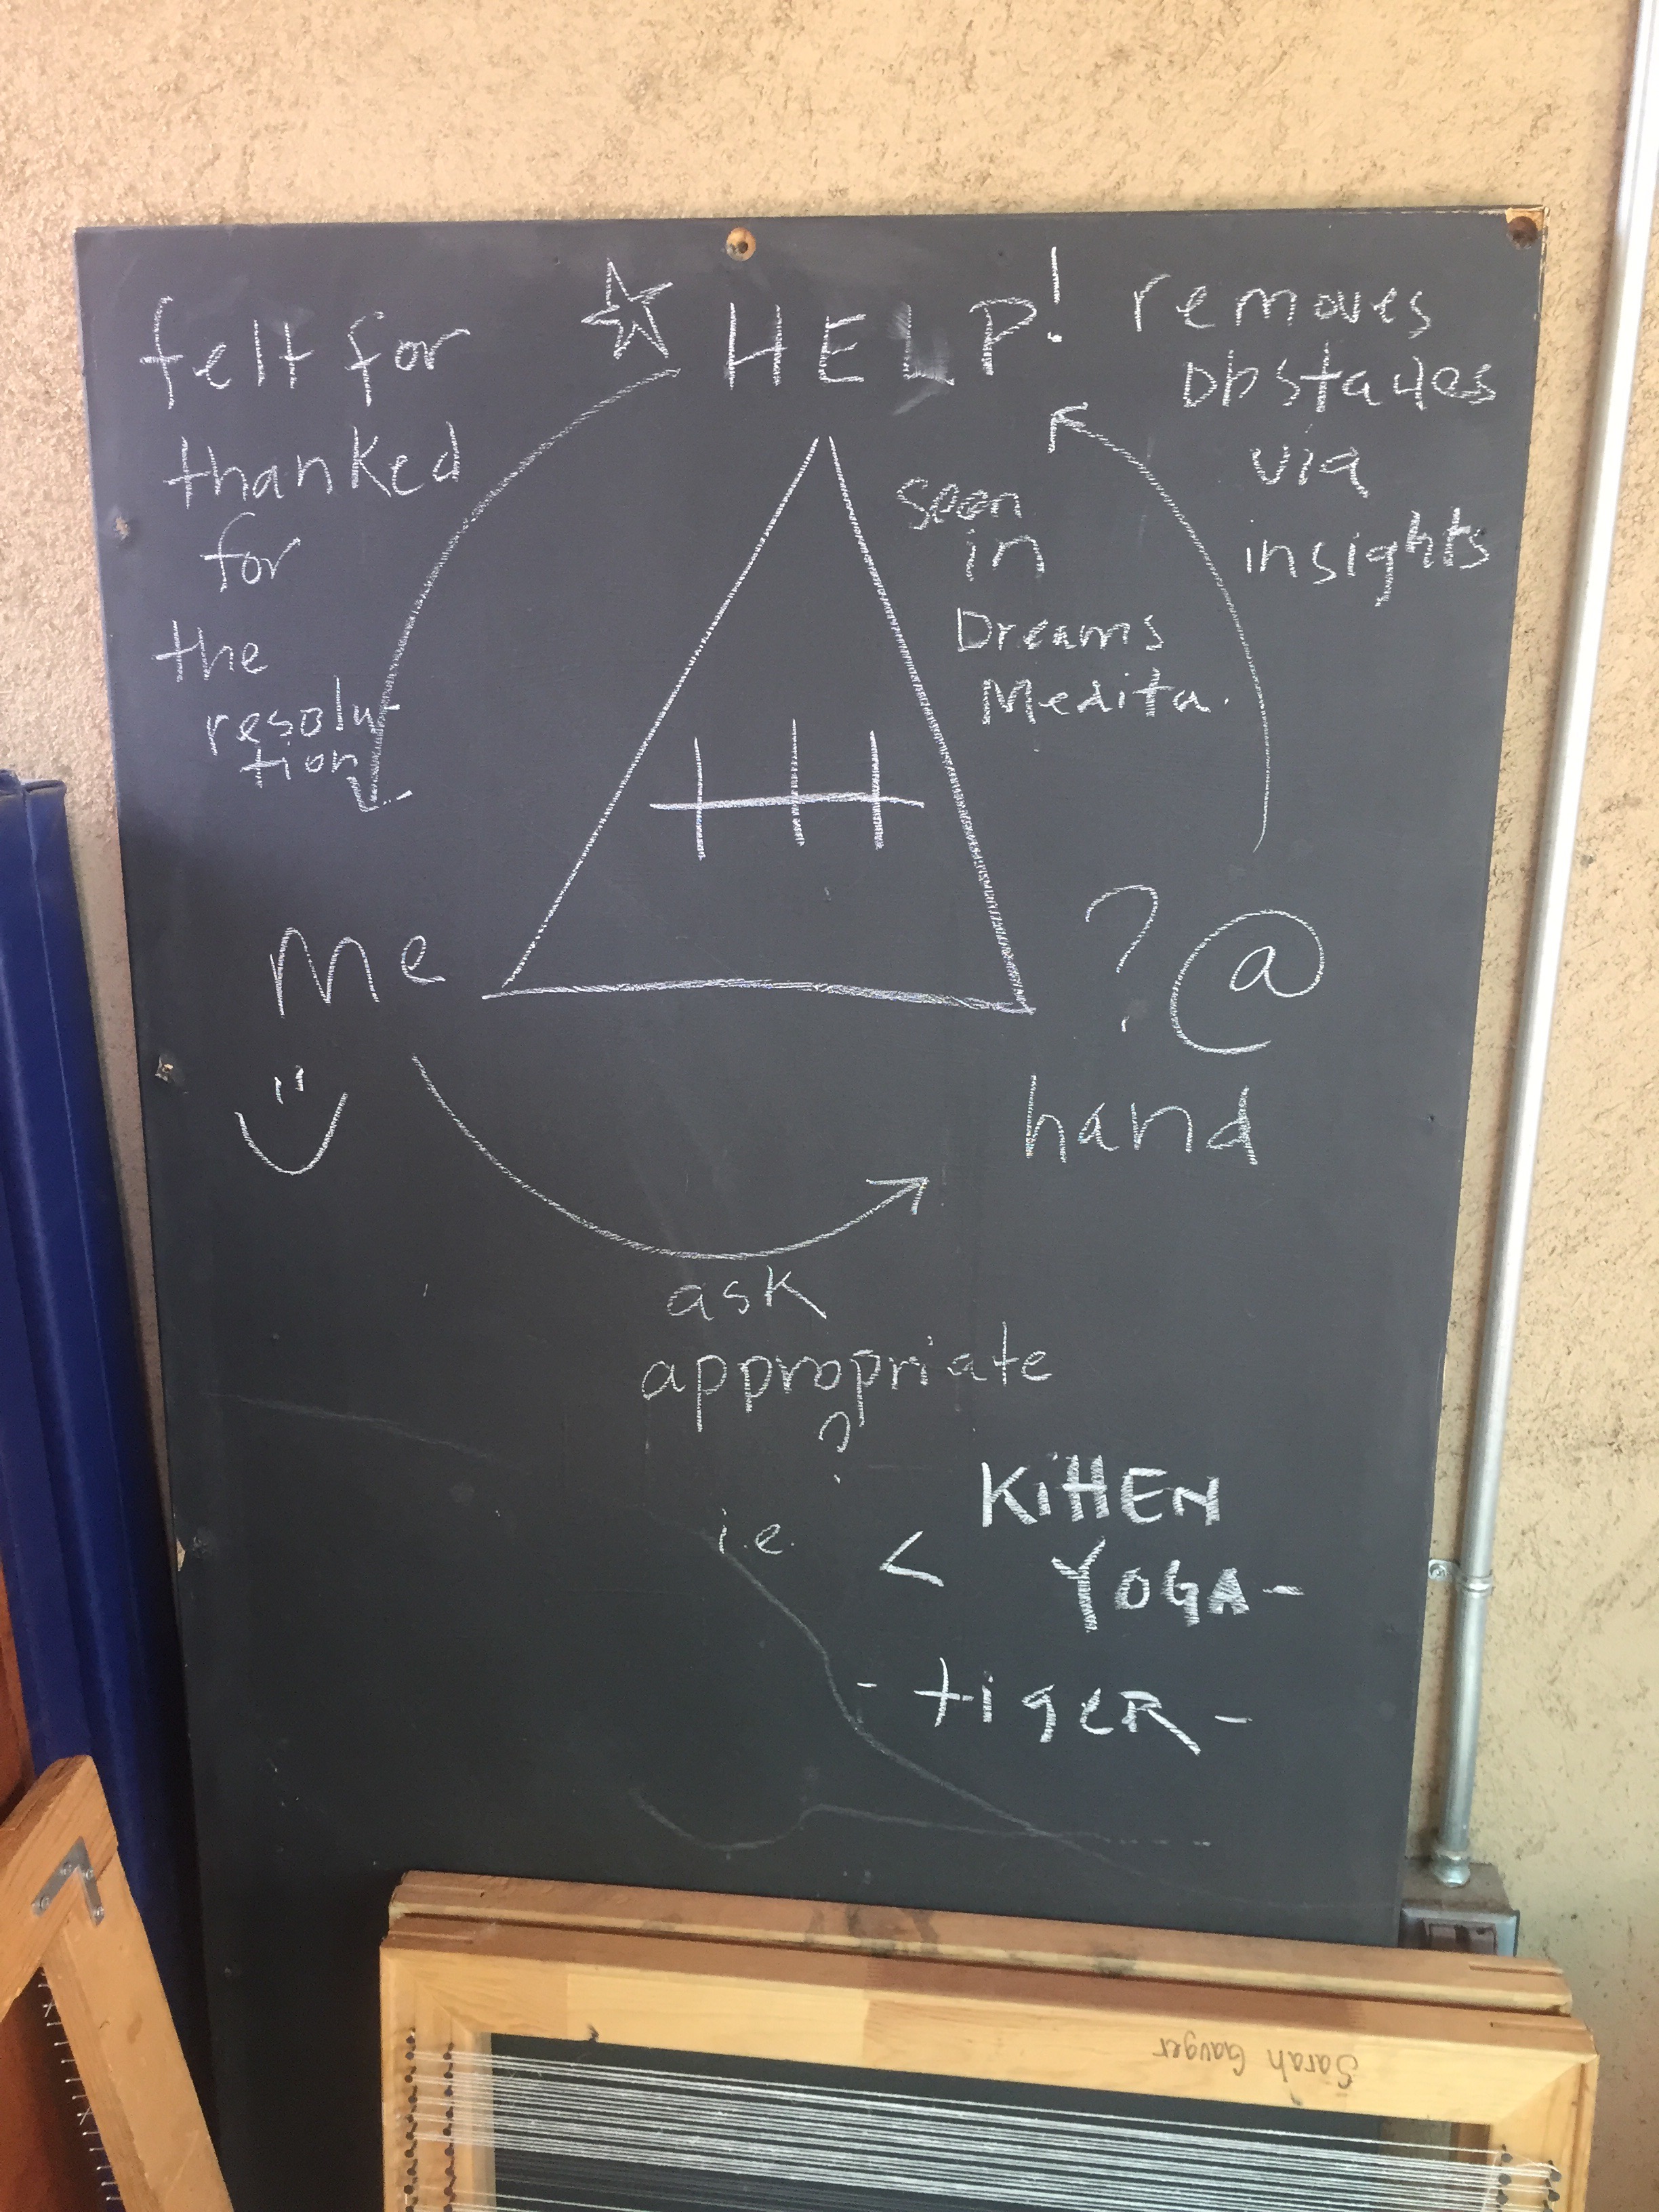 felt for
thanked
for
the
resolu-
tion
HELP!
removes
obstacles
via
insights
seen
in
Dreams
Medita.
Me
? @
hand
ask
appropriate
?
i.e. < KittEN
YOGA-
- tigeR -
Sarah Gauger